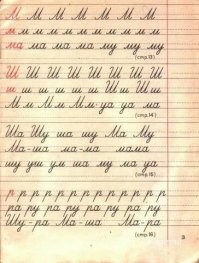 М М М М М М М
м м м м м м м м м м
ма ма ма ма му му му
(стр.13)
Ш Ш Ш Ш Ш Ш Ш
ш ш ш ш ш ш Ши Ши
(стр.14)
Ша Шу ша шу Ма Му
Ма-ша ма-ма мама
шу уш ум ша му ма уа
(стр.15)
р р р р р р р р р р р р
ра ру ра ру ра ру ра ру
Шу-ра Ма-ша Ма-ра
(стр.16)
3